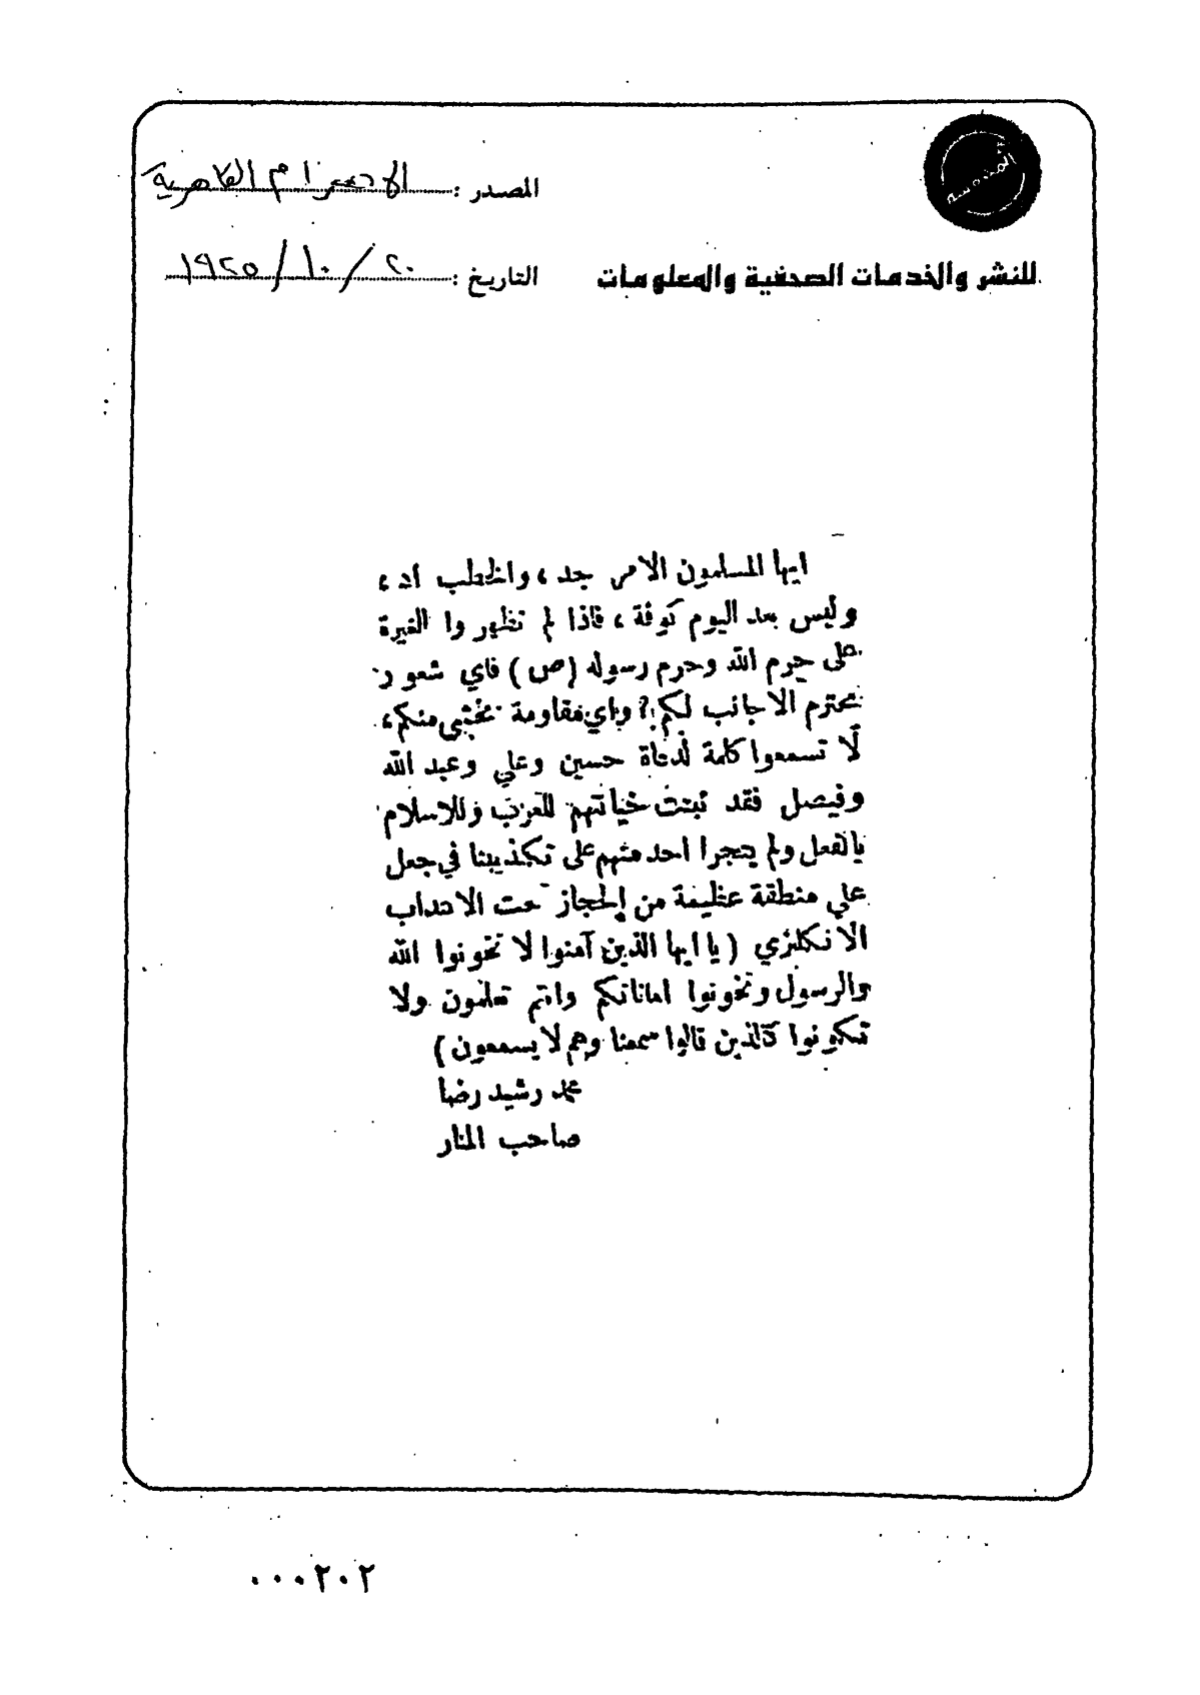 المصدر : الاهرام القاهرية
للنشر والخدمات الصحفية والمعلومات
التاريخ : ٢٠ / ١٠ / ١٩٢٥
ايها المسلمون الامر جد ، والخطب اد ،
وليس بعد اليوم كوفة ، فاذا لم تظهر وا الغيرة
على حرم الله وحرم رسوله (ص) فاي شعور
يحترم الاجانب لكم ؟ وباي مقاومة تخشى منكم ،
لا تسمعوا كلمة لدعاة حسين وعلي وعبد الله
وفيصل فقد ثبتت خيانتهم للعرب وللاسلام
بالفعل ولم يتجرا احد منهم على تكذيبنا في جعل
علي منطقة عظيمة من الحجاز تحت الانتداب
الانكليزي (يا ايها الذين آمنوا لا تخونوا الله
والرسول وتخونوا اماناتكم وانتم تعلمون ولا
تكونوا كالذين قالوا سمعنا وهم لا يسمعون)
محمد رشيد رضا
صاحب المنار
٠٠٠٢٠٢